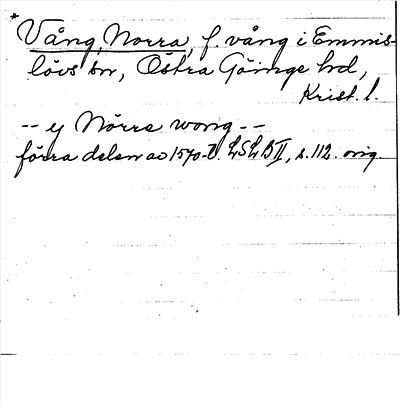 * Vång, Norra, f. vång i Emmis-
lövs sn, Östra Göinge hd,
Krist. l.
-- ej Nörre wong --
förra delen av 1570-t. LSLB II, s. 112. orig.